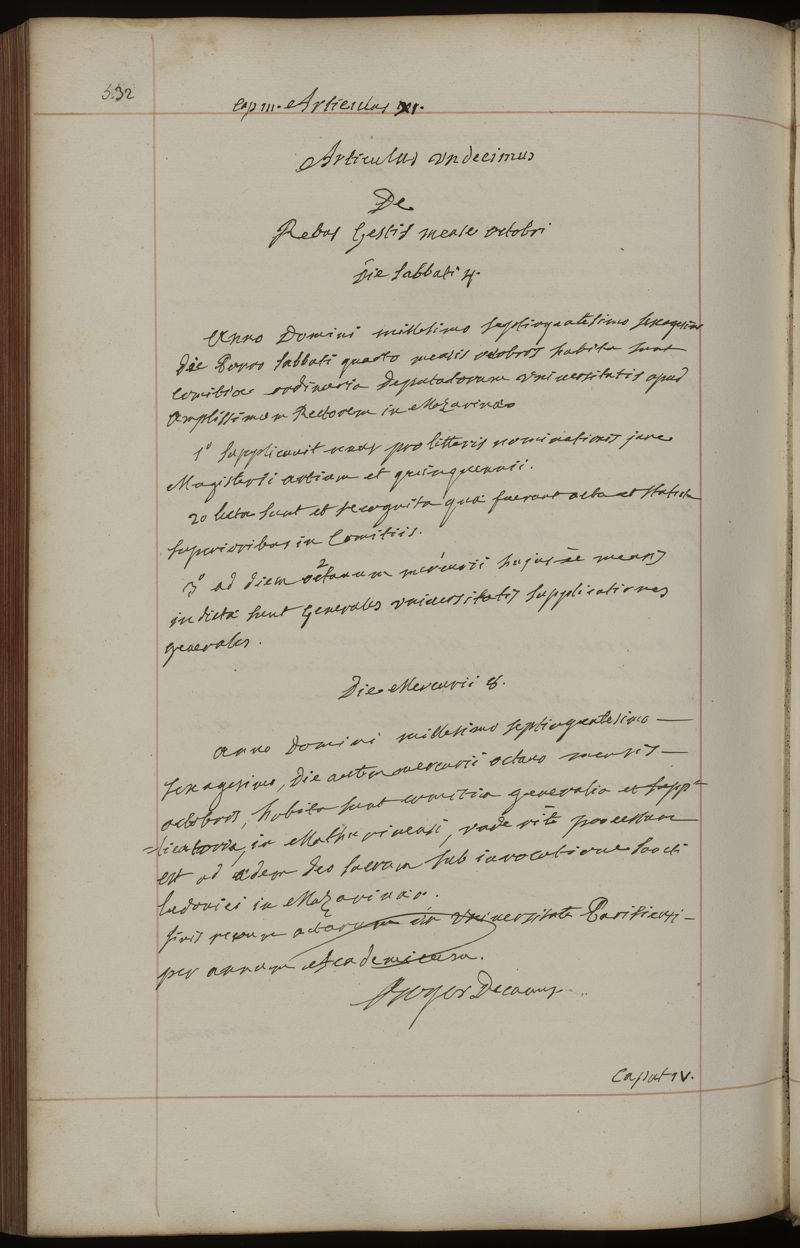 532
Cap III. Articulus XI.
Articulus undecimus
De
Rebus Gestis mense octobri
Die Sabbati 4.
Anno Domini millesimo septingentesimo sexagesimo
die Porro Sabbati quarto mensis octobris habita sunt
comitia ordinaria Deputatorum universitatis apud
Amplissimum Rectorem in Mazarinæo
1º Supplicavit unus pro litteris nominationis jure
Magisterii artium et quinquennii.
2º lecta sunt et recognita quæ fuerant acta et statuta
superioribus in Comitiis.
3º ad diem octavum mercurii hujusce mensis
indictæ sunt Generales universitatis supplicationes
generales.
Die Mercurii 8.
Anno Domini millesimo septingentesimo —
sexagesimo, die autem mercurii octavo mensis —
octobris, habita sunt comitia generalia et supp-
=licatoria, in Mathurinensi, unde ritè processum
est ad ædem deo sacram sub invocatione Sancti
ludovici in Mazarinæo.
finis rerum actarum in Universitate Parisiensi —
per annum Academicum.
Roger Decanus
Caput IV.